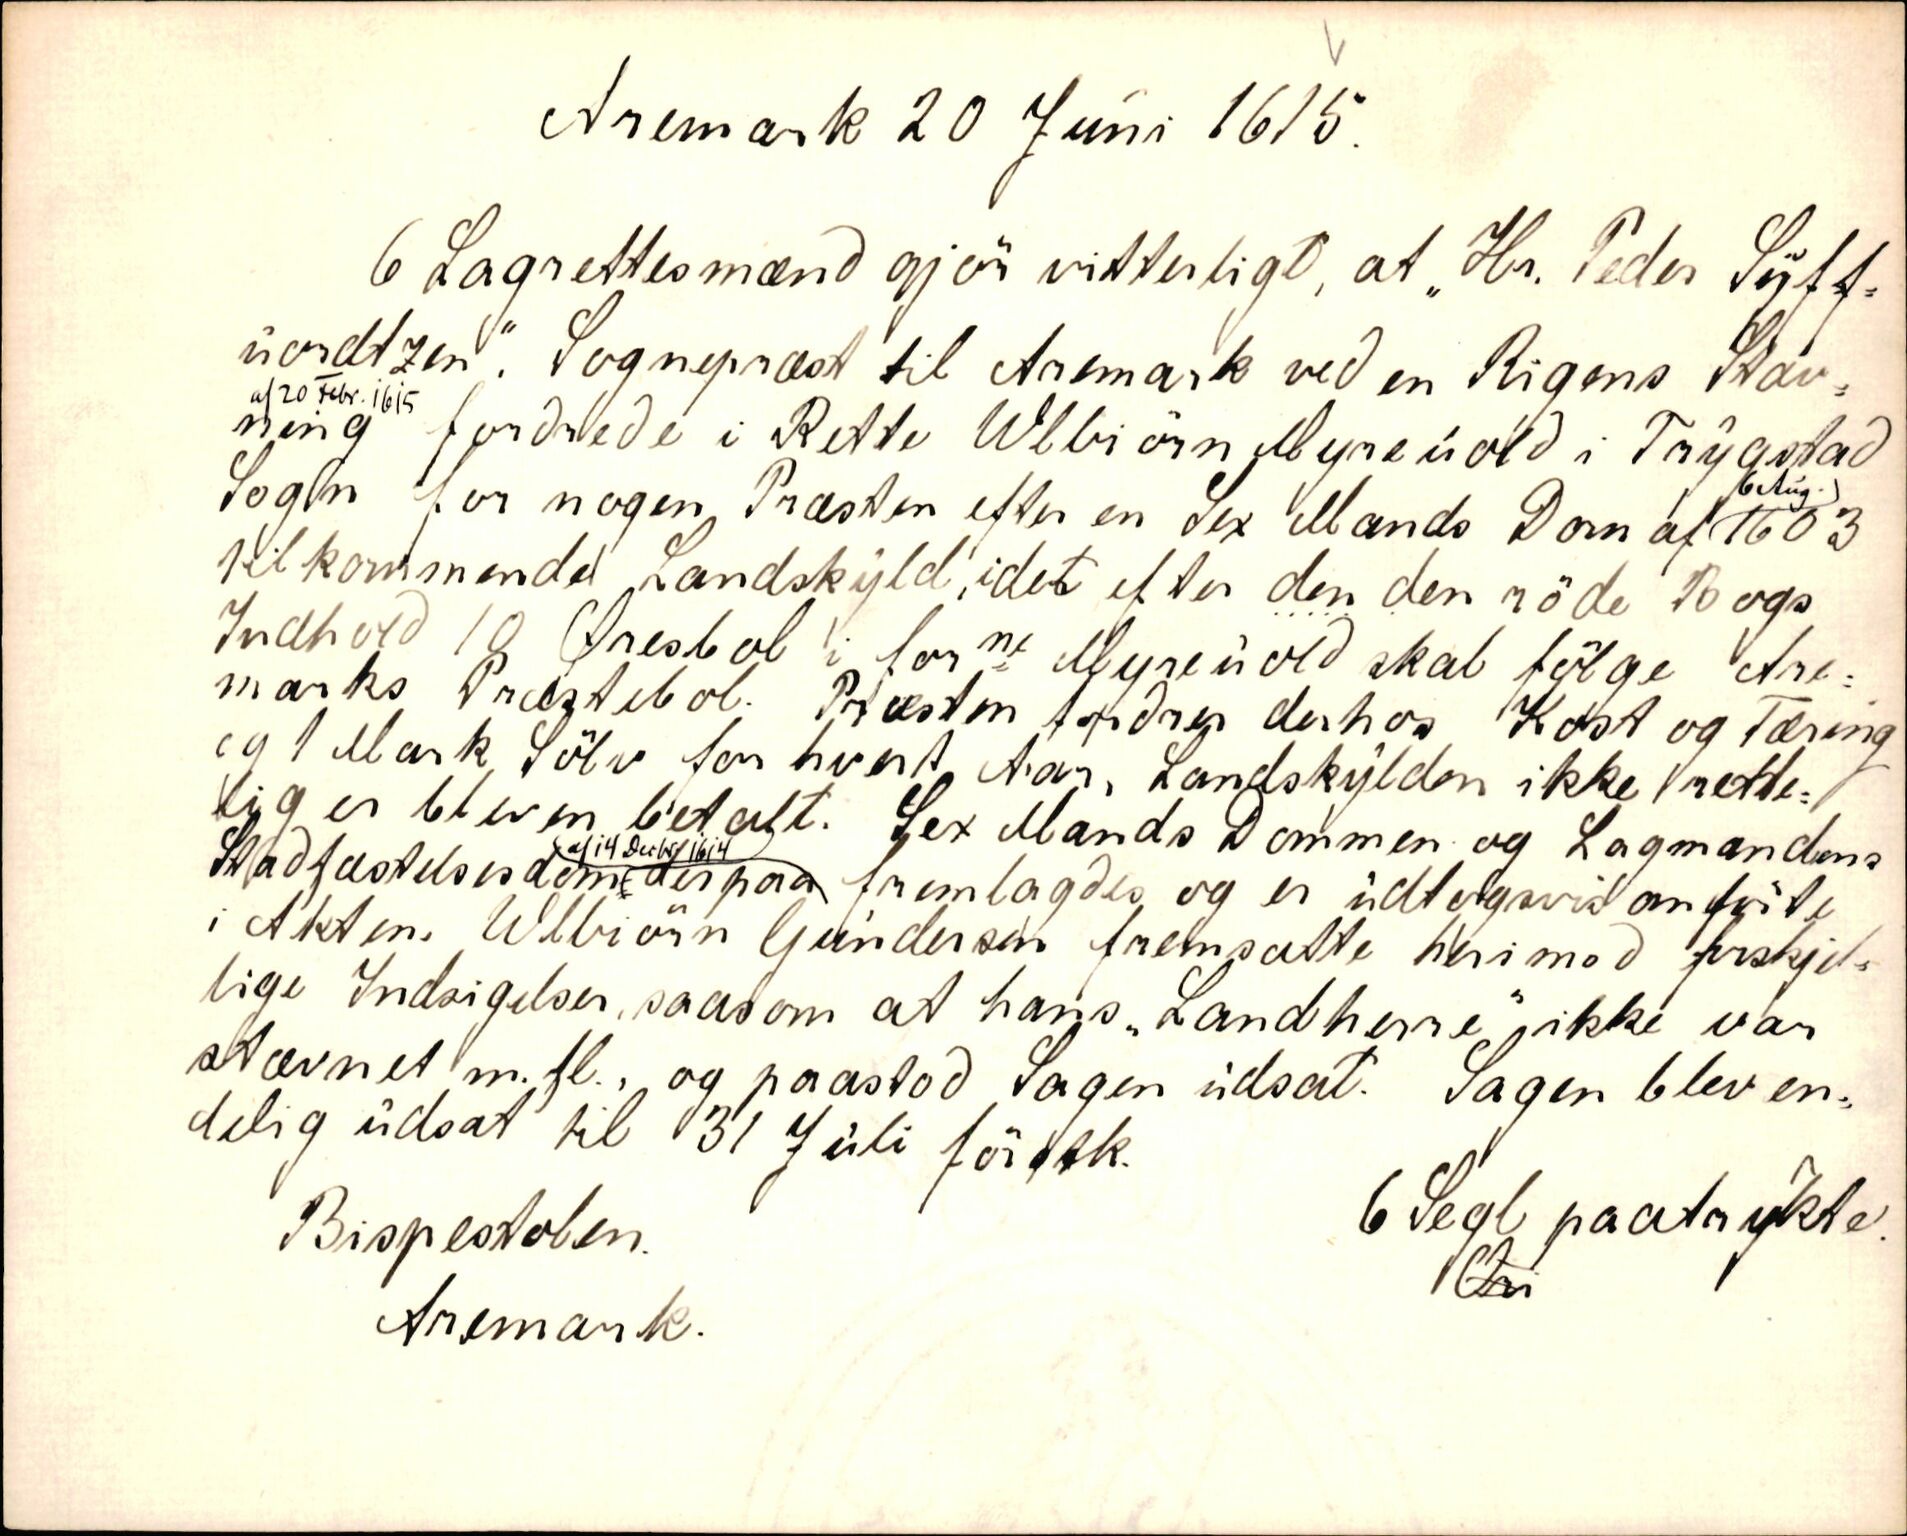 Aremark 20 Juni 1615.
6 Lagrettesmænd gjör vitterligt, at „Hr. Peder Syff-
uordtzen". Sognepræst til Aremark ved en Rigens Stæv-
af 20 Febr. 1615
ning fordrede i Rette Wlbiörn Myreuold i Trygstad
Sogn for nogen Præsten efter en Sex Mands Dom af 6 Aug. 1603
tilkommende Landskyld, idet efter den den röde Bogs
Indhold 10 Øresbol i forne Myreuold skal fölge Are-
marks Præstebol. Præsten fordrer derhos Kost og Tæring
og 1 Mark Sölv for hvert Aar, Landskylden ikke rette-
lig er bleven betalt. Sex Mands Dommen og Lagmandens
af 14 Decbr 1614
Stadfæstelsesdom derpaa fremlagdes og er udtogsvis anförte
i Akten. Wlbiörn Gundersen fremsatte herimod forskjel-
lige Indsigelser, saasom at hans „Landherre" ikke var
stævnet m. fl., og paastod Sagen udsat. Sagen blev en-
delig udsat til 31 Juli förstk.
6 Segl paatrykte.
Bispestolen.
Aremark.